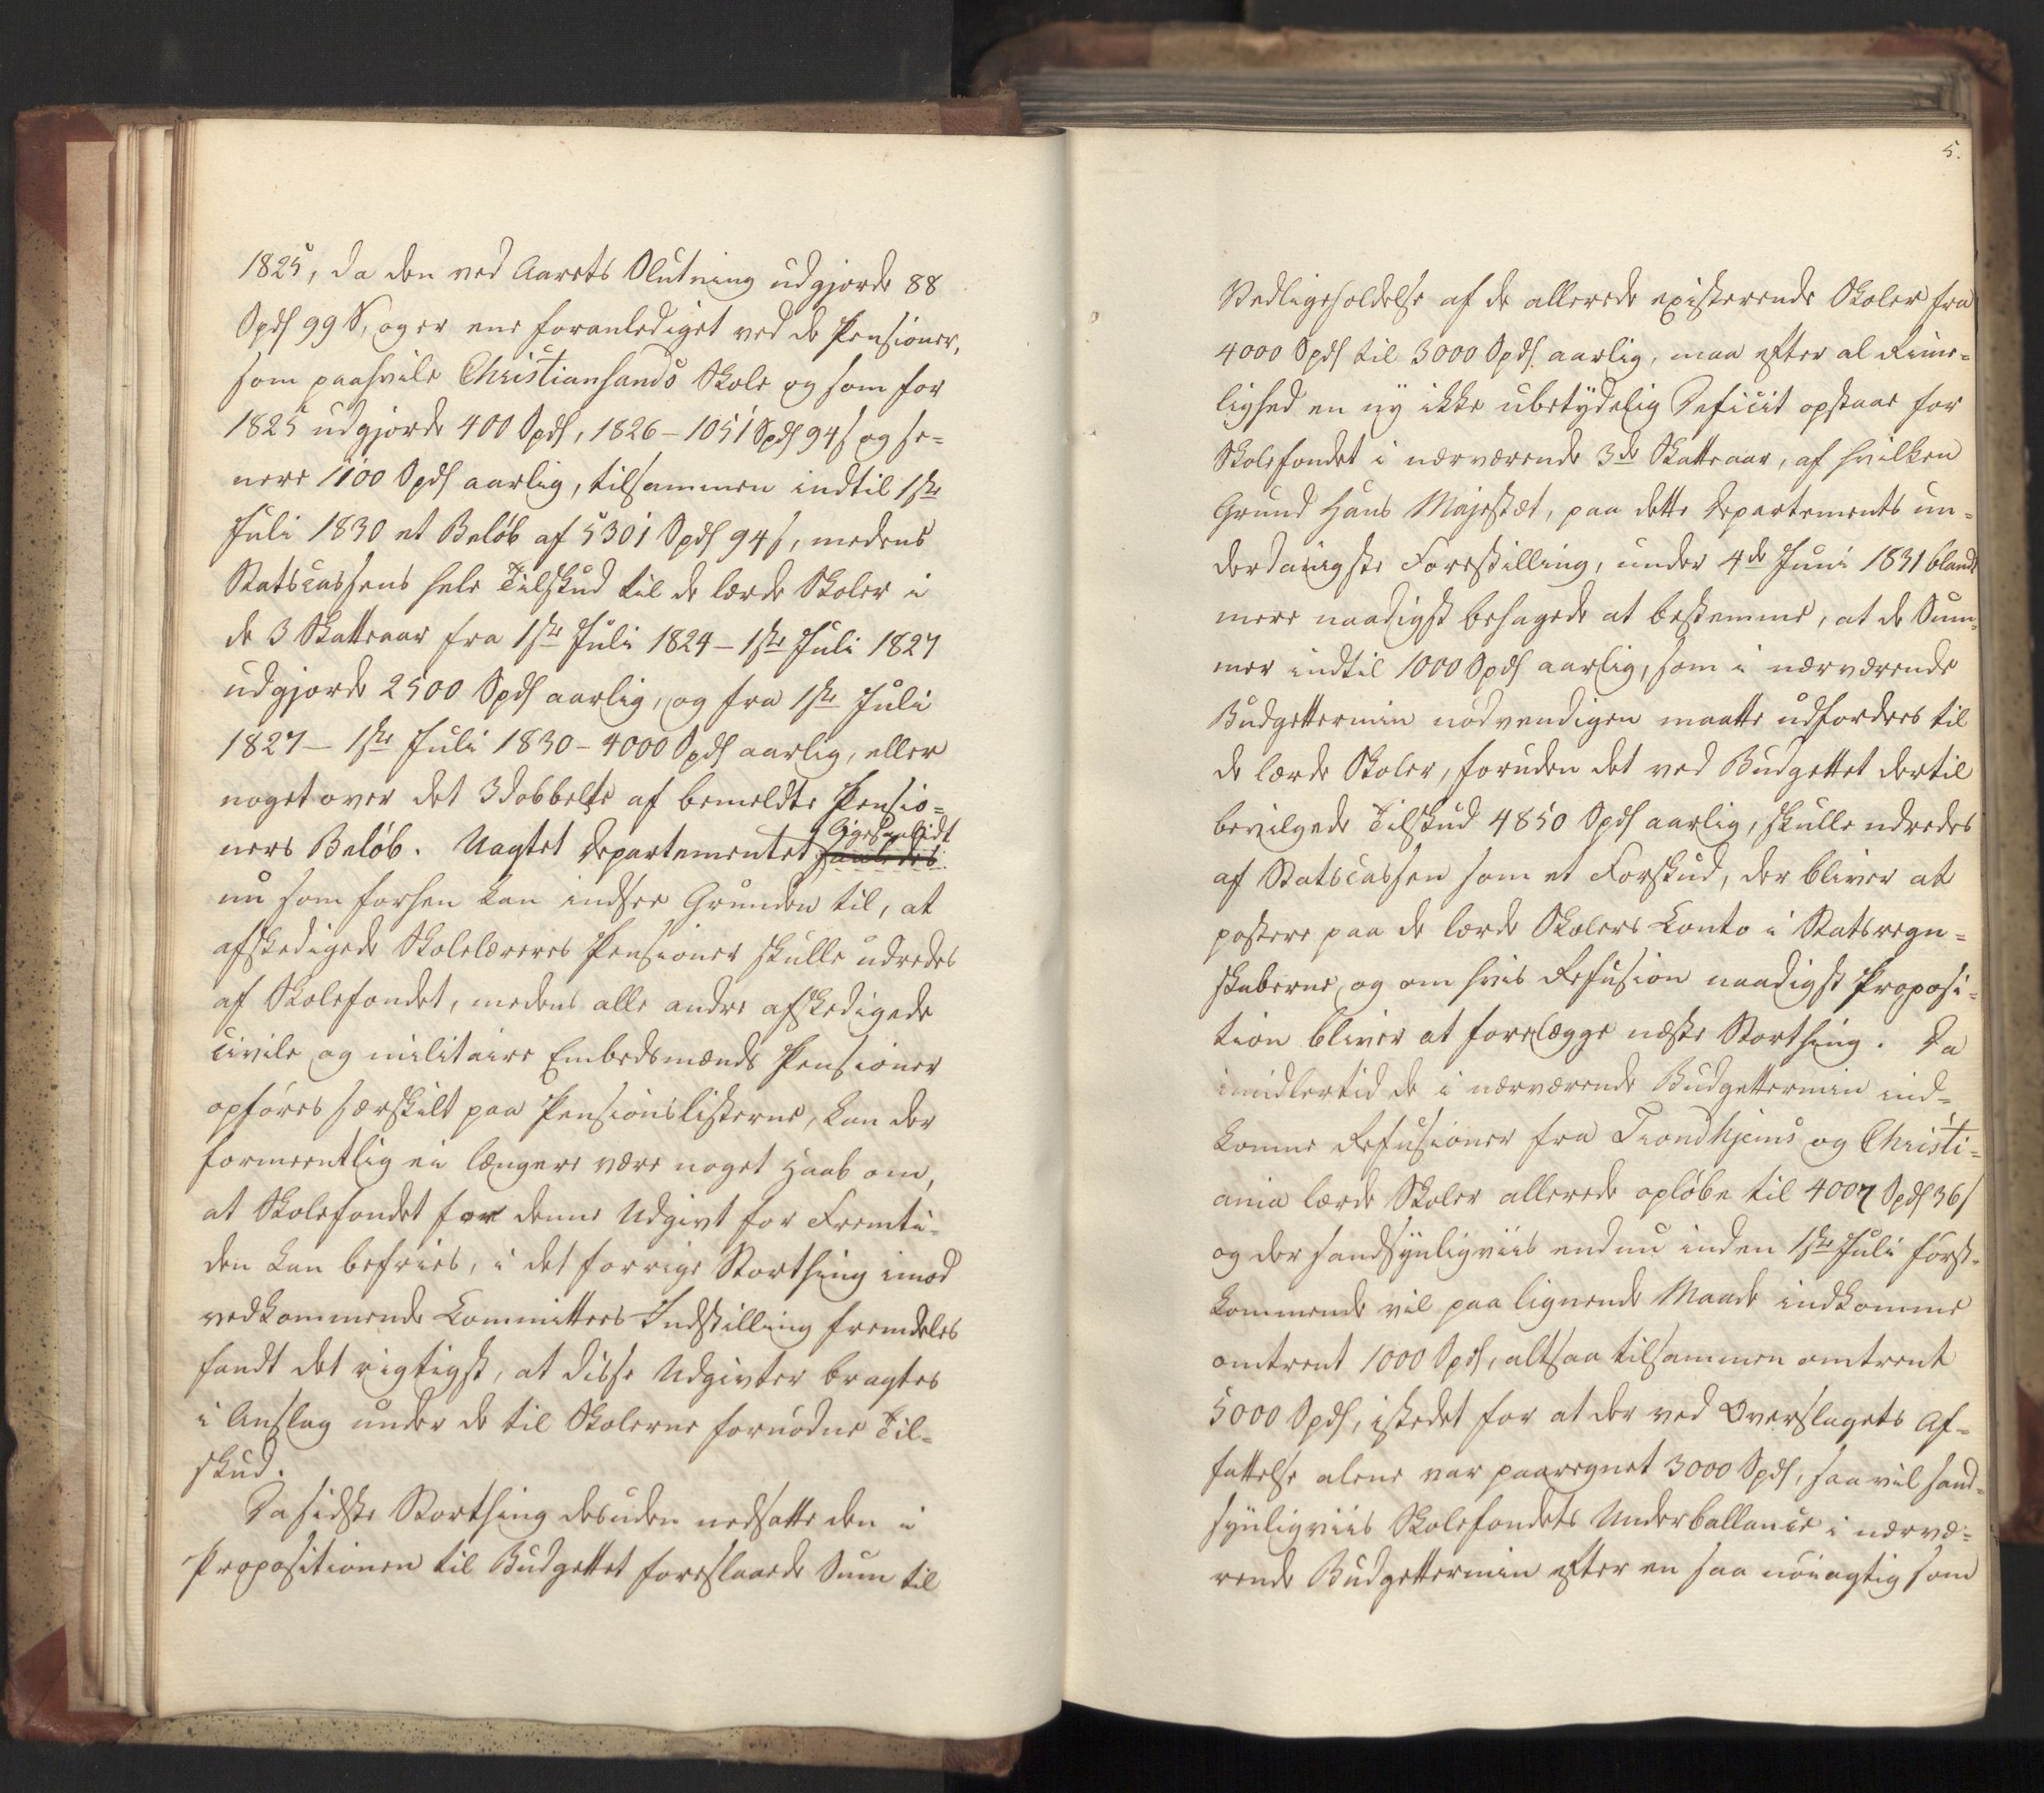 1825, da den ved Aarets Slutning udgjorde 88
Spd 99 s, og er ene foranlediget ved de Pensioner,
som paahvile Christiansands Skole og som for
1825 udgjorde 400 Spd, 1826 - 1051 Spd 94 s og se-
nere 1100 Spd aarlig, tilsammen indtil 1ste
Juli 1830 et Beløb af 5301 Spd 94 s, medens
Statscassens hele Tilskud til de lærde Skoler i
de 3 Skatteaar fra 1ste Juli 1824 - 1ste Juli 1827
udgjorde 2500 Spd aarlig, og fra 1ste Juli
1827 - 1ste Juli 1830 - 4000 Spd aarlig, eller
noget over det 3dobbelte af bemeldte Pensio-
ners Beløb. Uagtet Departementet ligesaalidt
nu som forhen kan indsee Grunden til, at
afskedigede Skolelæreres Pensioner skulle udredes
af Skolefondet, medens alle andre afskedigede
civile og militaire Embedsmænds Pensioner
opføres særskilt paa Pensionslisterne, kan der
formeentlig ei længere være noget Haab om,
at Skolefondet for denne Udgivt for Fremti-
den kan befries, i det forrige Storthing imod
vedkommende Committees Indstilling fremdeles
fandt det rigtigst, at disse Udgivter bragtes
i Anslag under de til Skolerne fornødne Til-
skud.
Da sidste Storthing desuden nedsatte den i
Propositionen til Budgettet foreslaaede Sum til
5.
Vedligeholdelse af de allerede existerende Skoler fra
4000 Spd til 3000 Spd aarlig, maa efter al Rime-
lighed en ny ikke ubetydelig Deficit opstaae for
Skolefondet i nærværende 3de Skatteaar, af hvilken
Grund Hans Majestæt, paa dette Departements un-
derdanigste Forestilling, under 4de Juni 1831 blandt
mere naadigst behagede at bestemme, at de Sum-
mer indtil 1000 Spd aarlig, som i nærværende
Budgettermin nødvendigen maatte udfordres til
de lærde Skoler, foruden det ved Budgettet dertil
bevilgede Tilskud 4850 Spd aarlig, skulle udredes
af Statscassen som et Forskud, der bliver at
postere paa de lærde Skolers Conto i Statsregn-
skaberne, og om hvis Refusion naadigst Proposi-
tion bliver at forelægge næste Storthing. Da
imidlertid de i nærværende Budgettermin ind-
komne Refusioner fra Trondhjems og Christi-
ania lærde Skoler allerede opløbe til 4007 Spd 36 s
og der sandsynligviis endnu inden 1ste Juli først-
kommende vil paa lignende Maade indkomme
omtrent 1000 Spd, altsaa tilsammen omtrent
5000 Spd, istedet for at der ved Overslagets Af-
fattelse alene var paaregnet 3000 Spd, saa vil sand-
synligviis Skolefondets Underballance i nærvæ-
rende Budgettermin efter en saa nøiagtig som